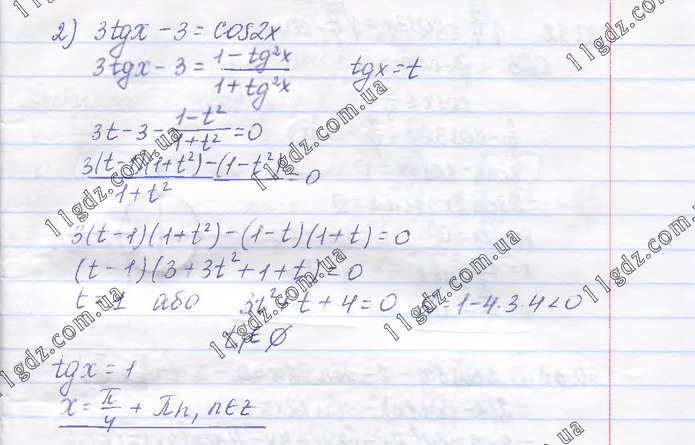 2) 3tgx - 3 = cos2x
3tgx - 3 = (1 - tg²x)/(1 + tg²x) tgx = t
3t - 3 - (1 - t²)/(1 + t²) = 0
(3(t - 1)(1 + t²) - (1 - t²))/(1 + t²) = 0
3(t - 1)(1 + t²) - (1 - t)(1 + t) = 0
(t - 1)(3 + 3t² + 1 + t) = 0
t = 1 або 3t² + t + 4 = 0 D = 1 - 4·3·4 < 0
t ∈ ∅
tgx = 1
x = π/4 + πn, n∈z
11gdz.com.ua
11gdz.com.ua
11gdz.com.ua
11gdz.com.ua
11gdz.com.ua
11gdz.com.ua
11gdz.com.ua
11gdz.com.ua
.ua